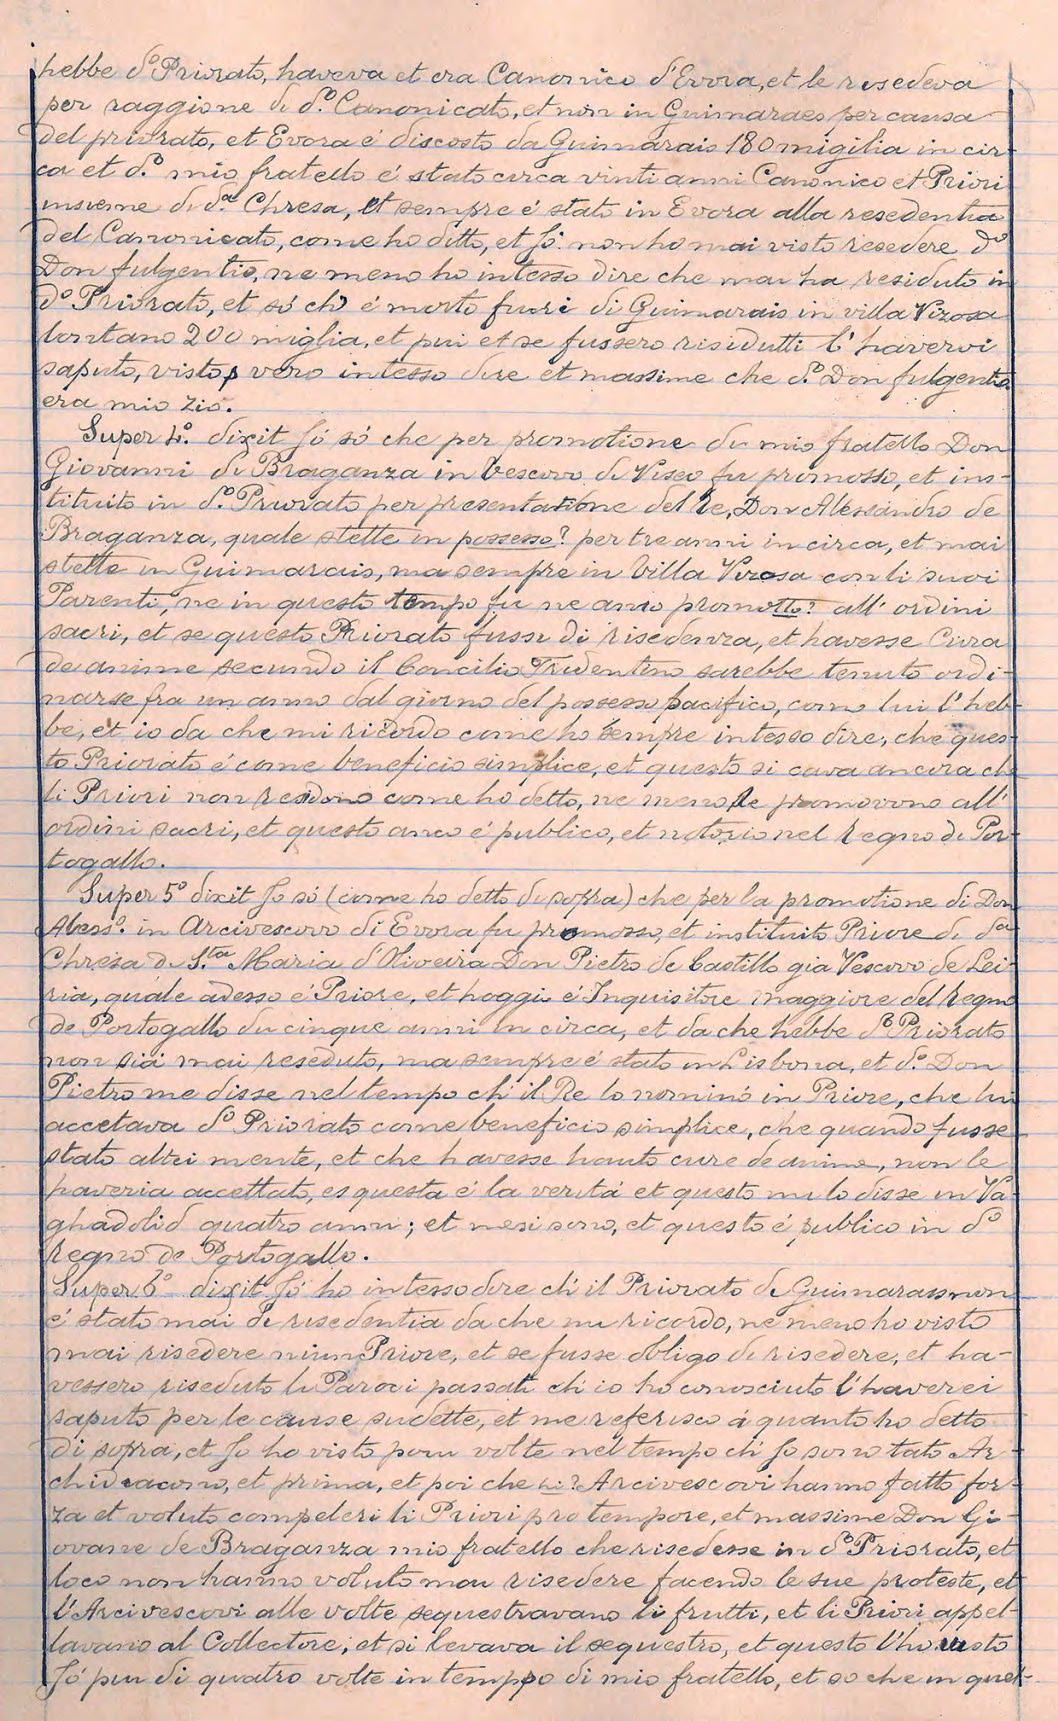 hebbe d.º Priorato, haveva et era Canonico d'Evora, et le resedeva
per raggione di d.º Canonicato, et non in Guimaraes per causa
del priorato, et Evora é discosto da Guimarais 180 migilia in cir-
ca et d.º mio fratello é stato circa vinti anni Canonico et Priori
insieme di d.ª Chresa, et sempre é stato in Evora alla resedentia
del Canonicato, come ho ditto, et Jó non ho mai visto resedere d.º
Don fulgentio, ne meno ho intesso dire che mai ha residuto in
d.º Priorato, et só ch'é morto fuori di Guimarais in villa Vizosa
lontano 200 miglia, et piu et se fussero risedutti l'havervi
saputo, visto, vero intesso dire et massime che d.º Don fulgentio
era mio zio.
Super 4.º dixit Jó só che per promotione di mio fratello Don
Giovanni di Braganza in Vescovo di Viseo fu promosso, et ins-
tituito in d.º Priorato per presentatione del Re, Don Alessandro de
Braganza, quale stette in possesso? per tre anni in circa, et mai
stette in Guimarais, ma sempre in Villa Vizosa con li suoi
Parenti, ne in questo tempo fu ne anco promotto? all'ordini
sacri, et se questo Priorato fussi di risedenza, et havesse Cura
de anime secundo il Concilio Tridentino sarebbe tenuto ordi-
narse fra un anno dal giorno del possesso pacifico, como lui l'heb-
be, et io da che mi ricordo come ho sempre intesso dire, che ques-
to Priorato é come beneficio simplice, et questo si cava ancora che
li Priori non resdono come ho detto, ne meno se promovono all'
ordini sacri, et questo anco é publico, et notorio nel regno di Por-
togallo.
Super 5º dixit Jo só (come ho detto di sopra) che per la promotione di Don
Aless.º in Arcivescovo di Evora fu promosso, et instituito Priore di d.ª
Chresa di S.ta Maria d'Oliveira Don Pietro de Castillo gia Vescovo de Lei-
ria, quale adesso é Priore, et hoggi é Inquisitore maggiore del regno
de Portogallo du cinque anni in circa, et da che hebbe d.º Priorato
non sia mai reseduto, ma sempre é stato in Lisbona, et d.º Don
Pietro me disse nel tempo ch'il Re lo nominó in Priore, che lui
accetava d.º Priorato come beneficio simplice, che quando fusse
stato altri mente, et che havesse hauto cure de anime, non le
haveria accettato, es questa é la veritá et questo mi lo disse in Va-
ghadolid quatro anni; et mesi sono, et questo é publico in d.º
regno de Portogallo.
Super 6º dixit Jó ho intesso dire ch'il Priorato di Guimaraes non
é stato mai di resedentia da che mi ricordo, ne meno ho visto
mai risedere niun Priore, et se fusse obligo di risedere, et ha-
vessero riseduto li Paroci passati ch'io ho conosciuto l'haverei
saputo per le cause sudette, et me referisco á quanto ho detto
di sopra, et Jo ho visto poiu volte nel tempo ch'Jo sono tato Ar-
chideacono, et prima, et poi che li? Arcivescovi hanno fatto for-
za et voluto compeleri li Priori pro tempore, et massime Don Gi-
ovane de Braganza mio fratello che risedesse in d.º Priorato, et
loco non hanno voluto mai risedere facendo le sue proteste, et
l'Arcivescovi alle volte sequestravano li frutti, et li Priori appel-
lavano al Collectore, et si levava il sequestro, et questo l'ho visto
Jó piu di quatro volte in tempo di mio fratello, et so che in quel-